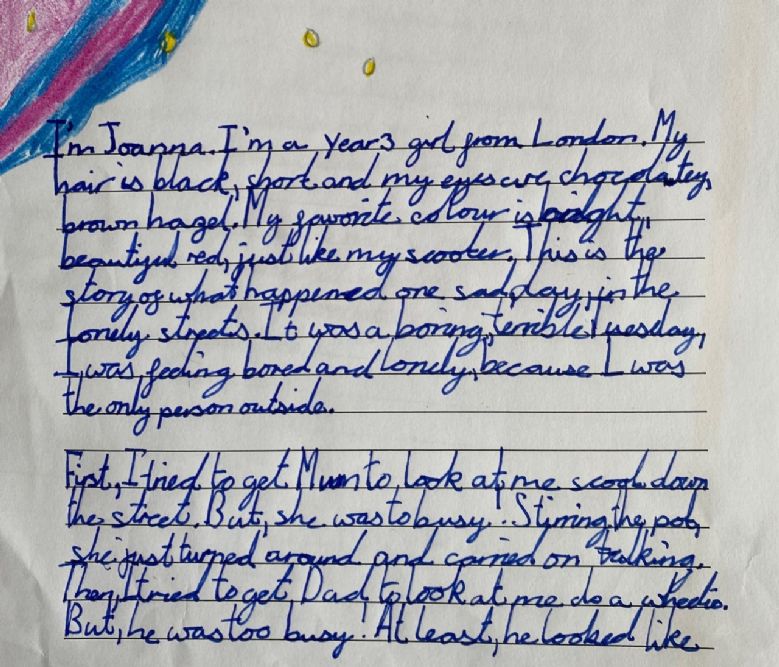 I'm Joanna. I'm a Year 3 girl from London. My
hair is black, short and my eyes are chocolatey,
brown hazel. My favorite colour is bright,
beautiful red, just like my scooter. This is the
story of what happened one sad day, in the
lonely streets. It was a boring, terrible Tuesday,
I was feeling bored and lonely, because I was
the only person outside.
First, I tried to get Mum to look at me scoot down
the street. But, she was to busy! Stirring the pot,
she just turned around and carried on talking.
Then, I tried to get Dad to look at me do a wheelie.
But, he was too busy! At least, he looked like